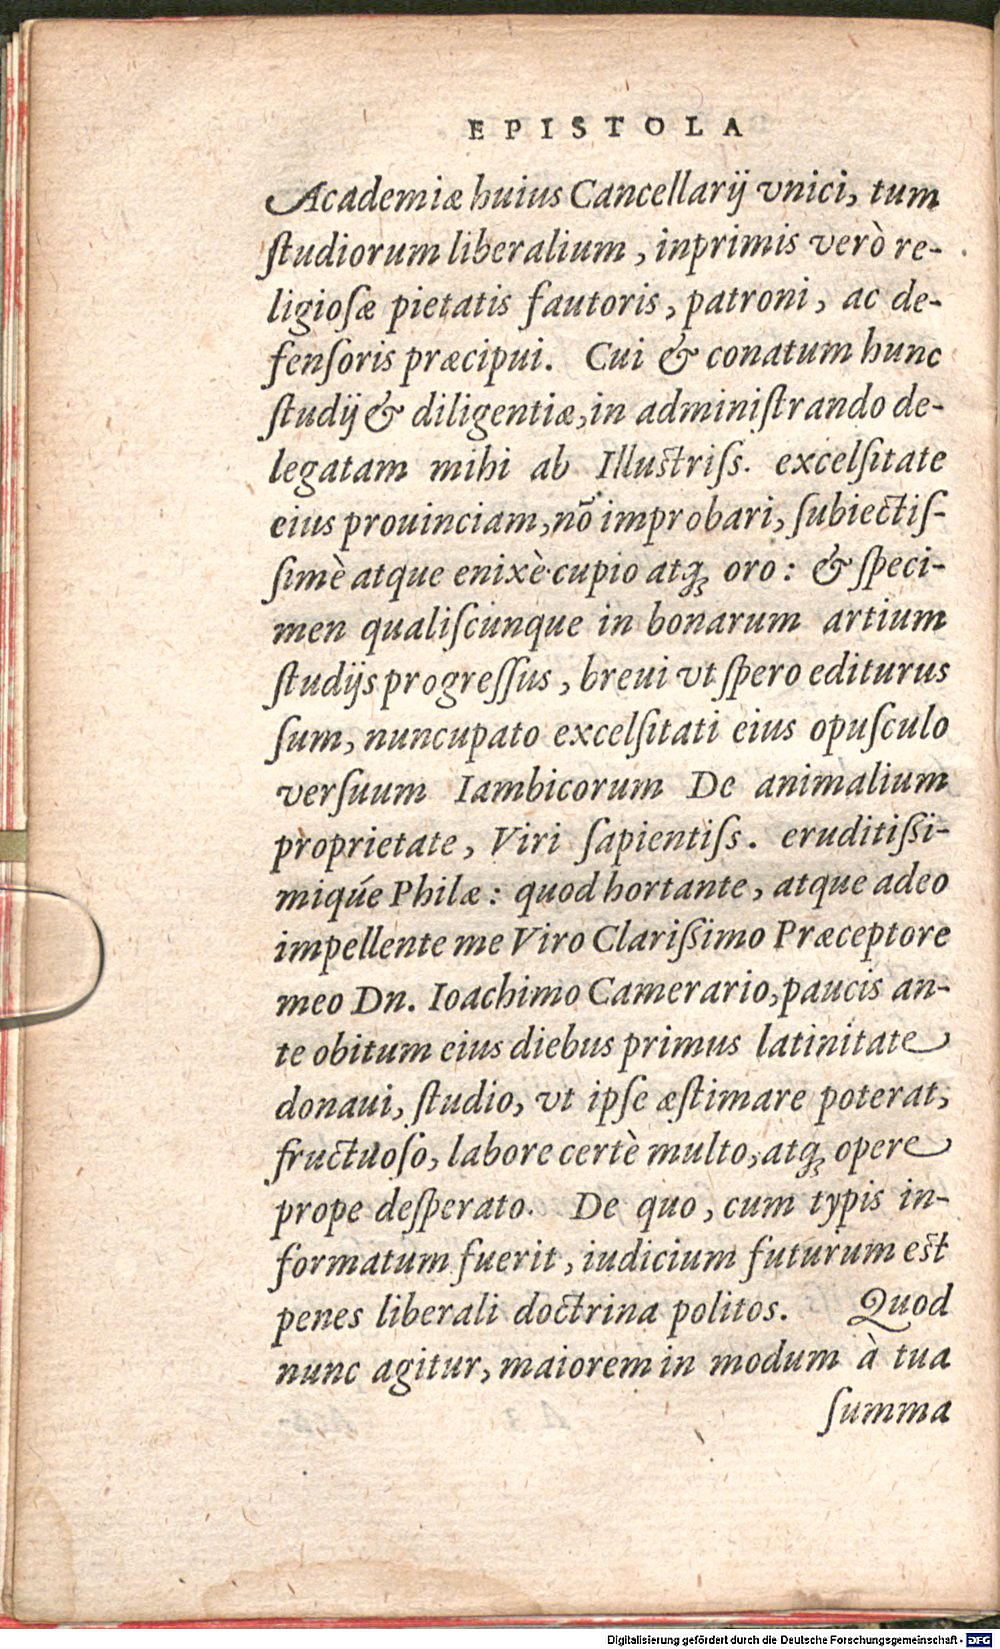 EPISTOLA
Academiæ huius Cancellarij vnici, tum
ſtudiorum liberalium, inprimis verò re-
ligioſæ pietatis fautoris, patroni, ac de-
fenſoris præcipui. Cui & conatum hunc
ſtudij & diligentiæ, in adminiſtrando de-
legatam mihi ab Illuſtriſs. excelſitate
eius prouinciam, nō improbari, ſubiectiſ-
ſimè atque enixè cupio atq; oro: & ſpeci-
men qualiſcunque in bonarum artium
ſtudijs progreſſus, breui vt ſpero editurus
ſum, nuncupato excelſitati eius opuſculo
verſuum Iambicorum De animalium
proprietate, Viri ſapientiſs. eruditiſsi-
miq́ue Philæ: quod hortante, atque adeo
impellente me Viro Clariſsimo Præceptore
meo Dn. Ioachimo Camerario, paucis an-
te obitum eius diebus primus latinitate
donaui, ſtudio, vt ipſe æſtimare poterat,
fructuoſo, labore certè multo, atq; opere
prope deſperato. De quo, cum typis in-
formatum fuerit, iudicium futurum eſt
penes liberali doctrina politos. Quod
nunc agitur, maiorem in modum à tua
ſumma
Digitalisierung gefördert durch die Deutsche Forschungsgemeinschaft - DFG